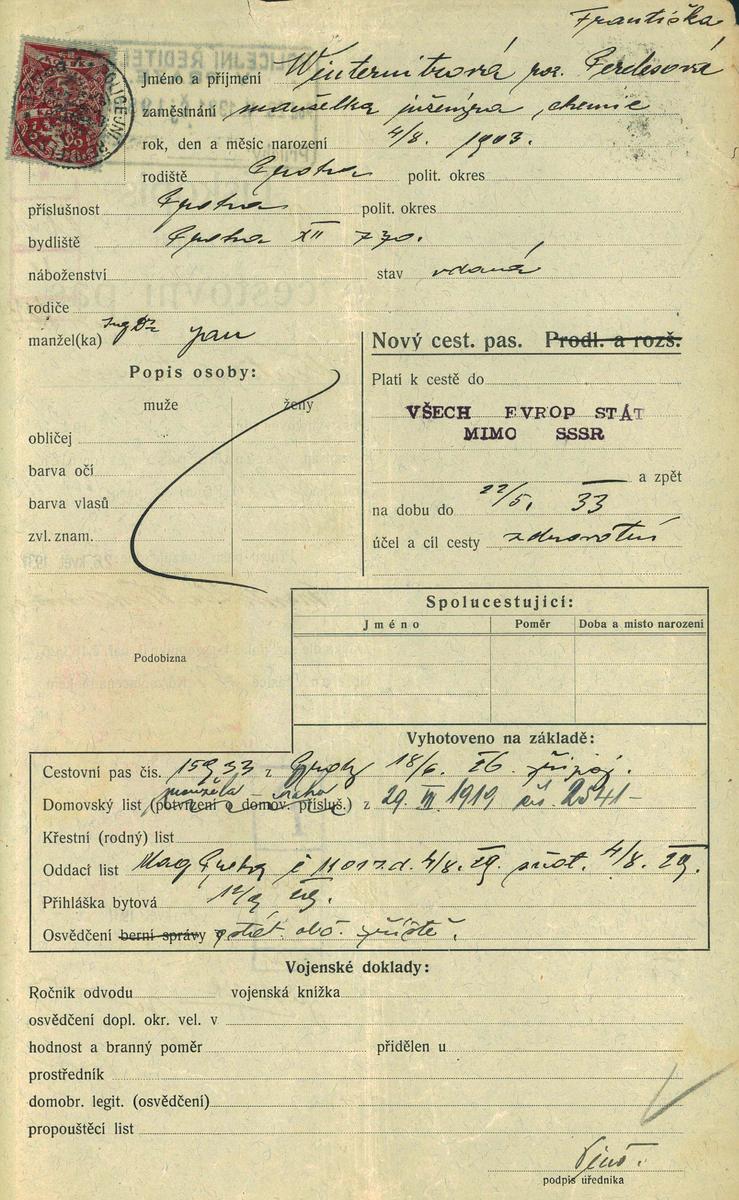 Františka
Jméno a příjmení Winternitzová roz. Gerlesová
zaměstnání manželka inženýra chemie
rok, den a měsíc narození 4/8. 1903.
rodiště Praha polit. okres
příslušnost Praha polit. okres
bydliště Praha XII 730.
náboženství stav vdaná
rodiče
manžel(ka) Ing Dr Jan
Nový cest. pas. Prodl. a rozš.
Popis osoby:
muže ženy
obličej
barva očí
barva vlasů
zvl. znam.
Platí k cestě do
VŠECH EVROP STÁT
MIMO SSSR
a zpět
na dobu do 22/5. 33
účel a cíl cesty zdravotní
Podobizna
Spolucestující:
Jméno Poměr Doba a místo narození
Vyhotoveno na základě:
Cestovní pas čís. 15933 z 18/6. 26. připoj.
manžela Praha
Domovský list (potvrzení o domov. přísluš.) z 29. VI 1919 čís. 2541
Křestní (rodný) list
Oddací list Mag Prahy 4/8. 29. 4/8. 29.
Přihláška bytová 12/9 29.
Osvědčení berní správy stát. obč. příště.
Vojenské doklady:
Ročník odvodu vojenská knížka
osvědčení dopl. okr. vel. v
hodnost a branný poměr přidělen u
prostředník
domobr. legit. (osvědčení)
propouštěcí list
podpis úředníka